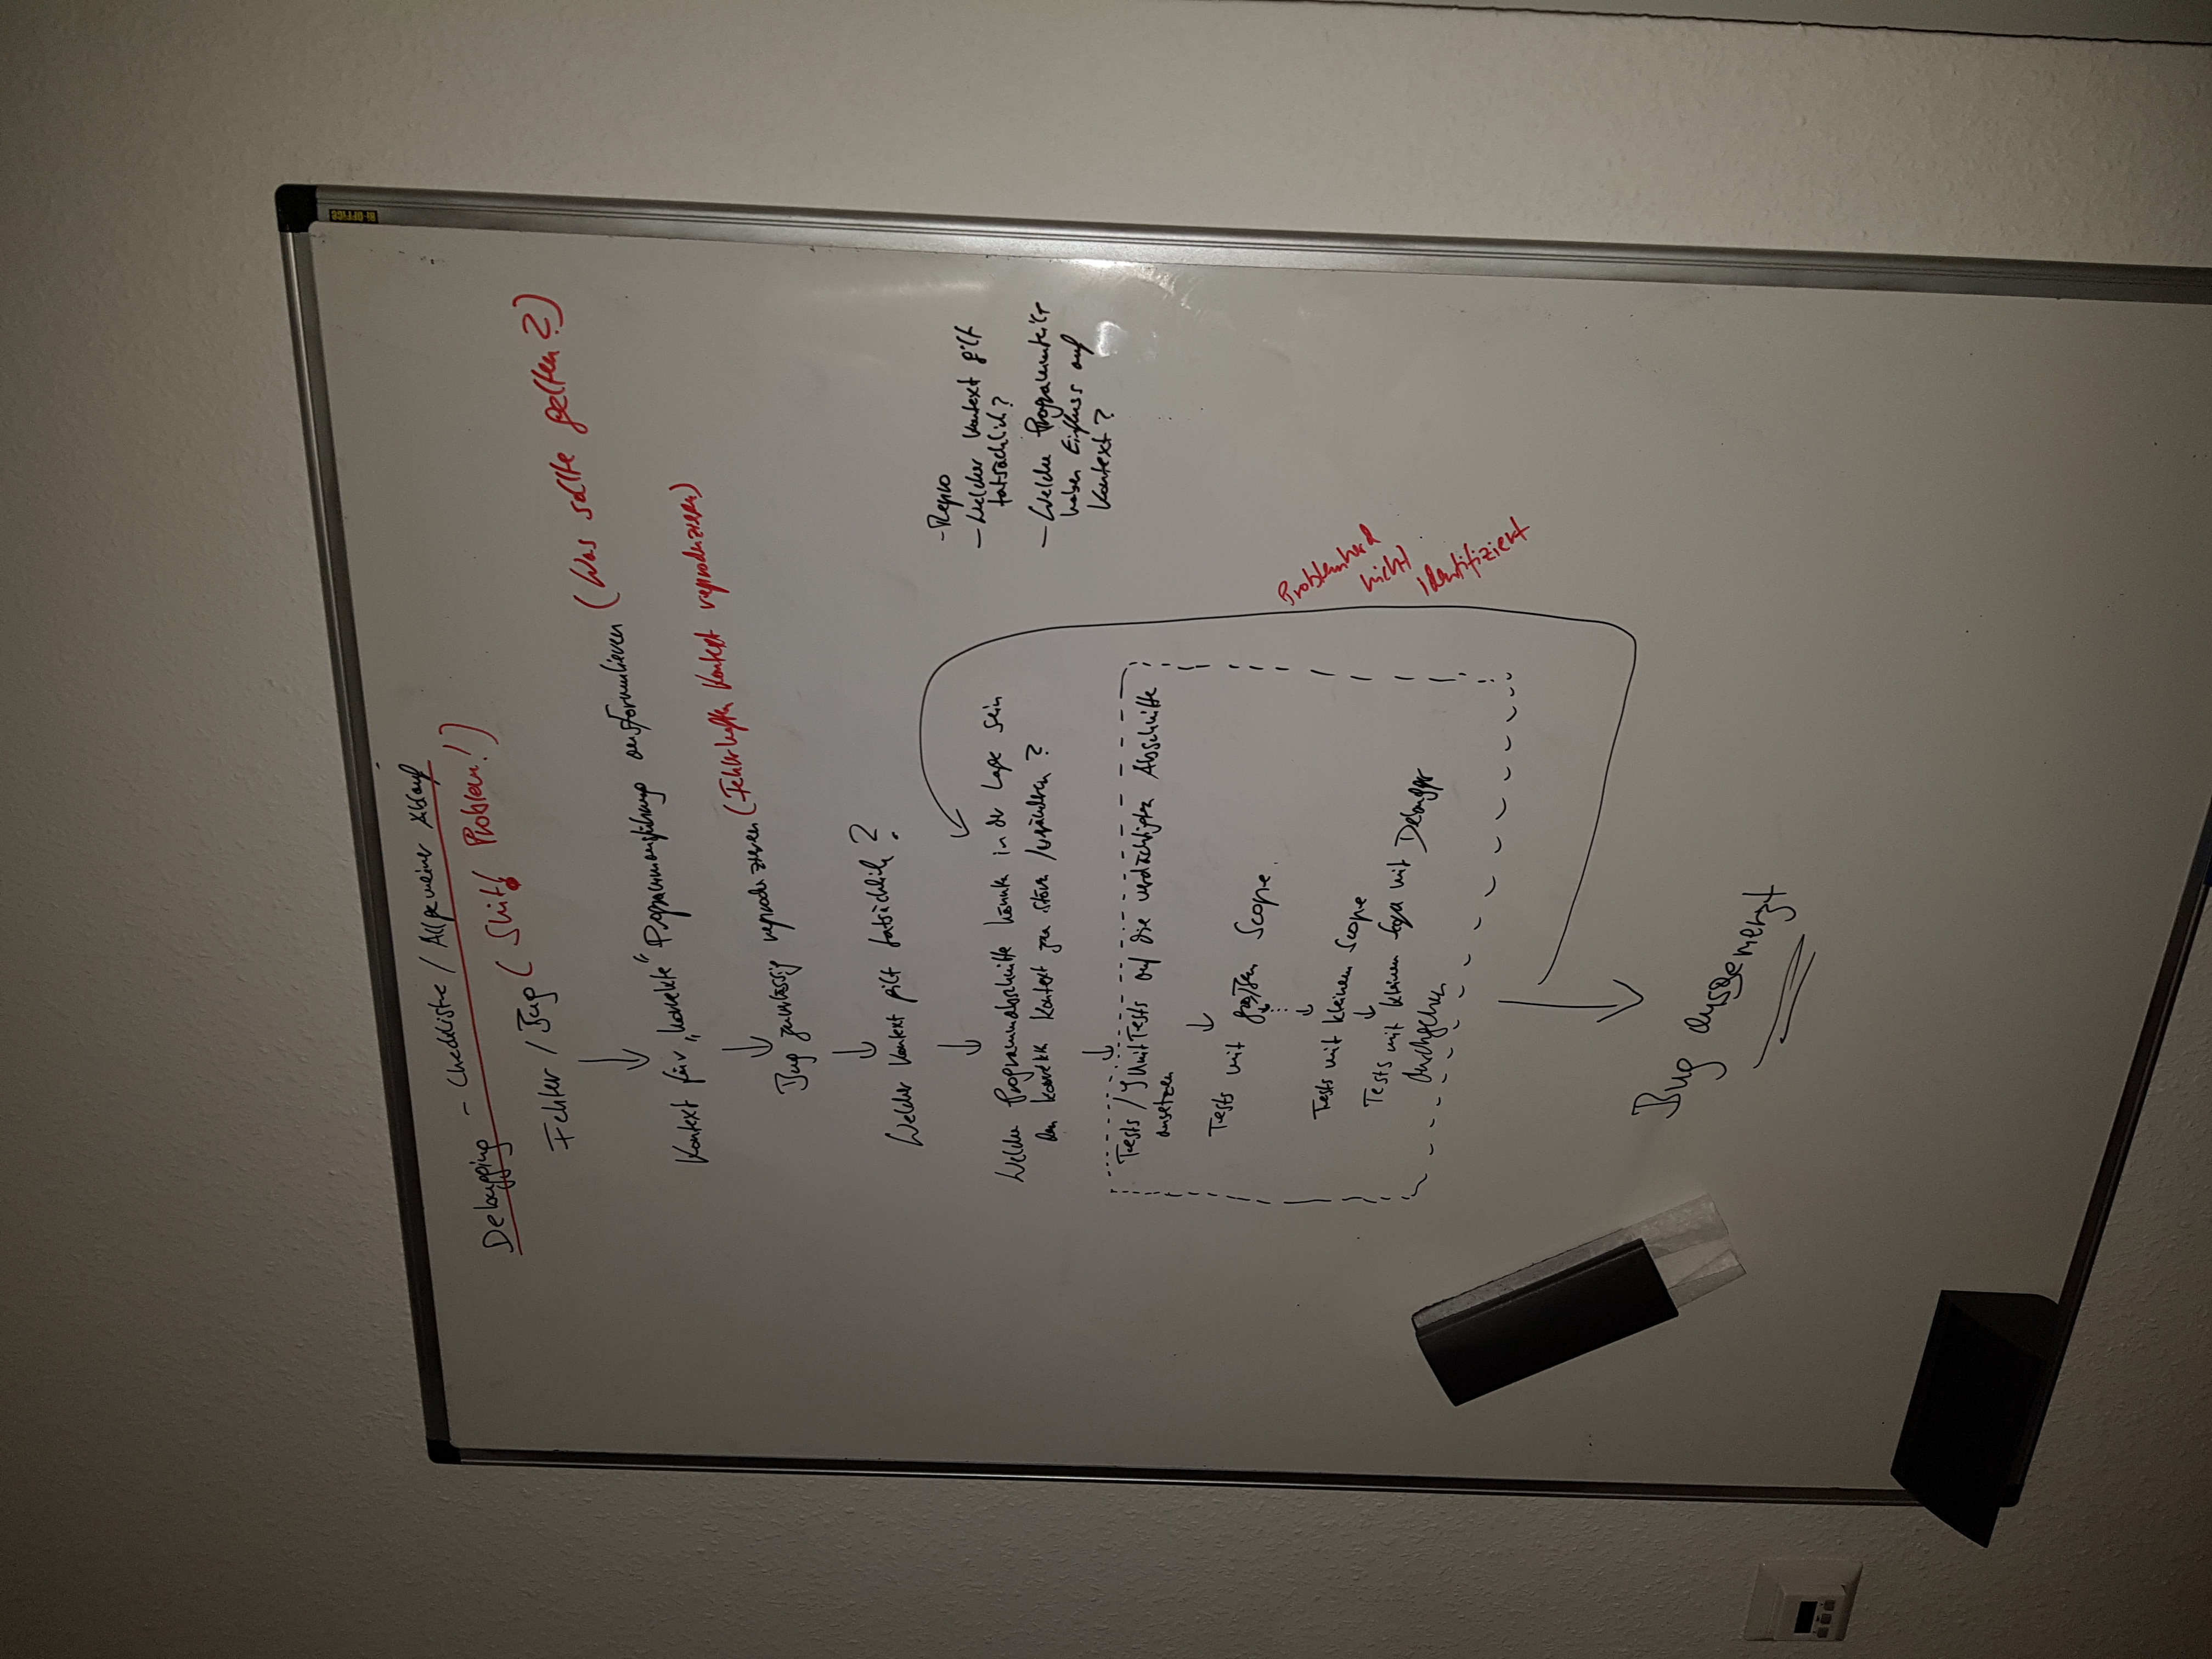 BI-OFFICE
Debugging - Checkliste / Allgemeiner Ablauf
Fehler / Bug (Shit! Problem!)
Kontext für „korrekte“ Programmausführung ausformulieren (Was sollte gelten?)
Bug zuverlässig reproduzieren (Fehlerhaften Kontext reproduzieren)
Welcher Kontext gilt tatsächlich?
Welche Programmabschnitte könnten in der Lage sein
den korrekten Kontext zu stören / verändern?
Tests / JUnitTests auf die verdächtigen Abschnitte
ansetzen
Tests mit großem Scope
Tests mit kleinem Scope
Tests mit kleinem Scope mit Debugger
durchgehen
Bug ausgemerzt
Problemherd
nicht
identifiziert
- Repro
- Welcher Kontext gilt
tatsächlich?
- Welche Programmteile
haben Einfluss auf
Kontext?